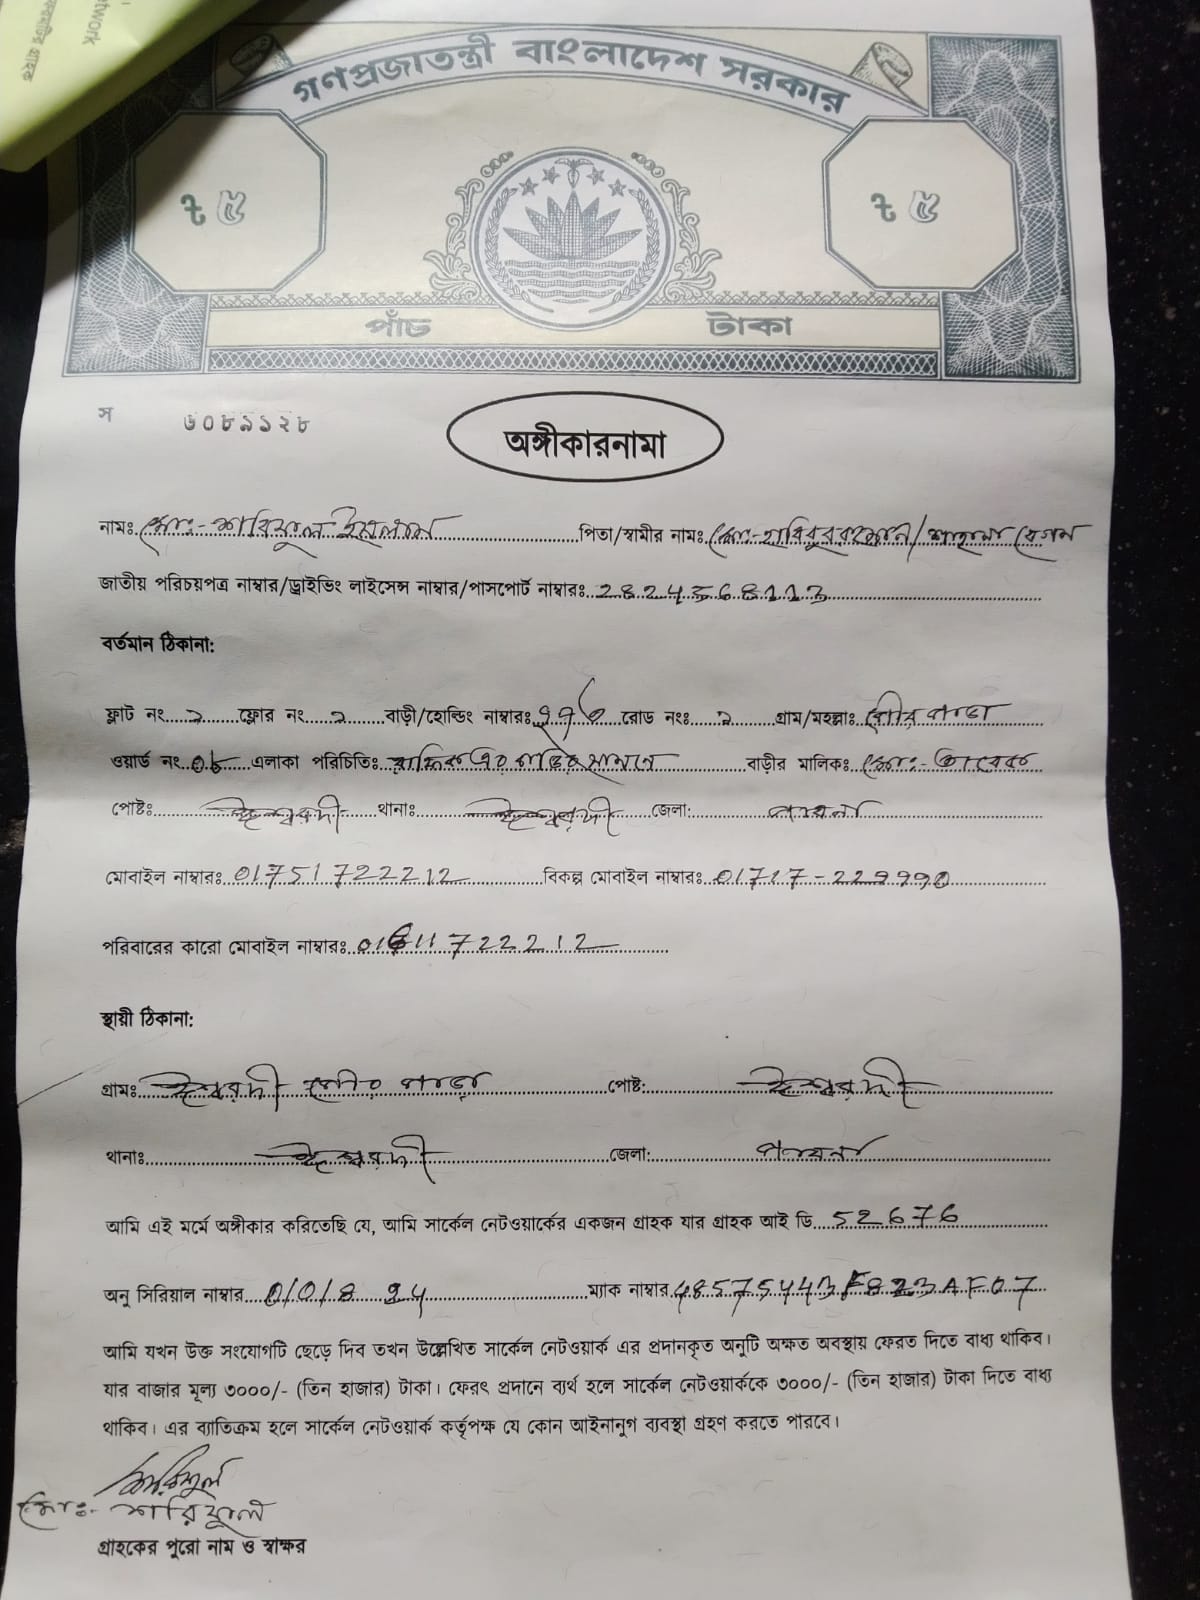 twork
গণপ্রজাতন্ত্রী বাংলাদেশ সরকার
৳ ৫ ৳ ৫
পাঁচ টাকা
স ৬০৮৯১২৮
অঙ্গীকারনামা
নামঃ মোঃ- শরিফুল ইসলাম পিতা/স্বামীর নামঃ মোঃ-হাবিবুর রহমান/শাহানা বেগম
জাতীয় পরিচয়পত্র নাম্বার/ড্রাইভিং লাইসেন্স নাম্বার/পাসপোর্ট নাম্বারঃ 2824568113
বর্তমান ঠিকানা:
ফ্লাট নং ২ ফ্লোর নং ২ বাড়ী/হোল্ডিং নাম্বারঃ রোড নংঃ ২ গ্রাম/মহল্লাঃ পাড়া
ওয়ার্ড নং ০৮ এলাকা পরিচিতিঃ এর বাড়ির সামনে বাড়ীর মালিকঃ মোঃ-
পোষ্টঃ ঈশ্বরদী থানাঃ ঈশ্বরদী জেলা: পাবনা
মোবাইল নাম্বারঃ 01751722212 বিকল্প মোবাইল নাম্বারঃ 01717-229990
পরিবারের কারো মোবাইল নাম্বারঃ 01611722212
স্থায়ী ঠিকানা:
গ্রামঃ ঈশ্বরদী পাড়া পোষ্ট: ঈশ্বরদী
থানাঃ ঈশ্বরদী জেলা: পাবনা
আমি এই মর্মে অঙ্গীকার করিতেছি যে, আমি সার্কেল নেটওয়ার্কের একজন গ্রাহক যার গ্রাহক আই ডি 52676
অনু সিরিয়াল নাম্বার 0/0/8 94 ম্যাক নাম্বার 48575443F823AF07
আমি যখন উক্ত সংযোগটি ছেড়ে দিব তখন উল্লেখিত সার্কেল নেটওয়ার্ক এর প্রদানকৃত অনুটি অক্ষত অবস্থায় ফেরত দিতে বাধ্য থাকিব।
যার বাজার মূল্য ৩০০০/- (তিন হাজার) টাকা। ফেরৎ প্রদানে ব্যর্থ হলে সার্কেল নেটওয়ার্ককে ৩০০০/- (তিন হাজার) টাকা দিতে বাধ্য
থাকিব। এর ব্যাতিক্রম হলে সার্কেল নেটওয়ার্ক কর্তৃপক্ষ যে কোন আইনানুগ ব্যবস্থা গ্রহণ করতে পারবে।
শরিফুল
মোঃ- শরিফুল
গ্রাহকের পুরো নাম ও স্বাক্ষর